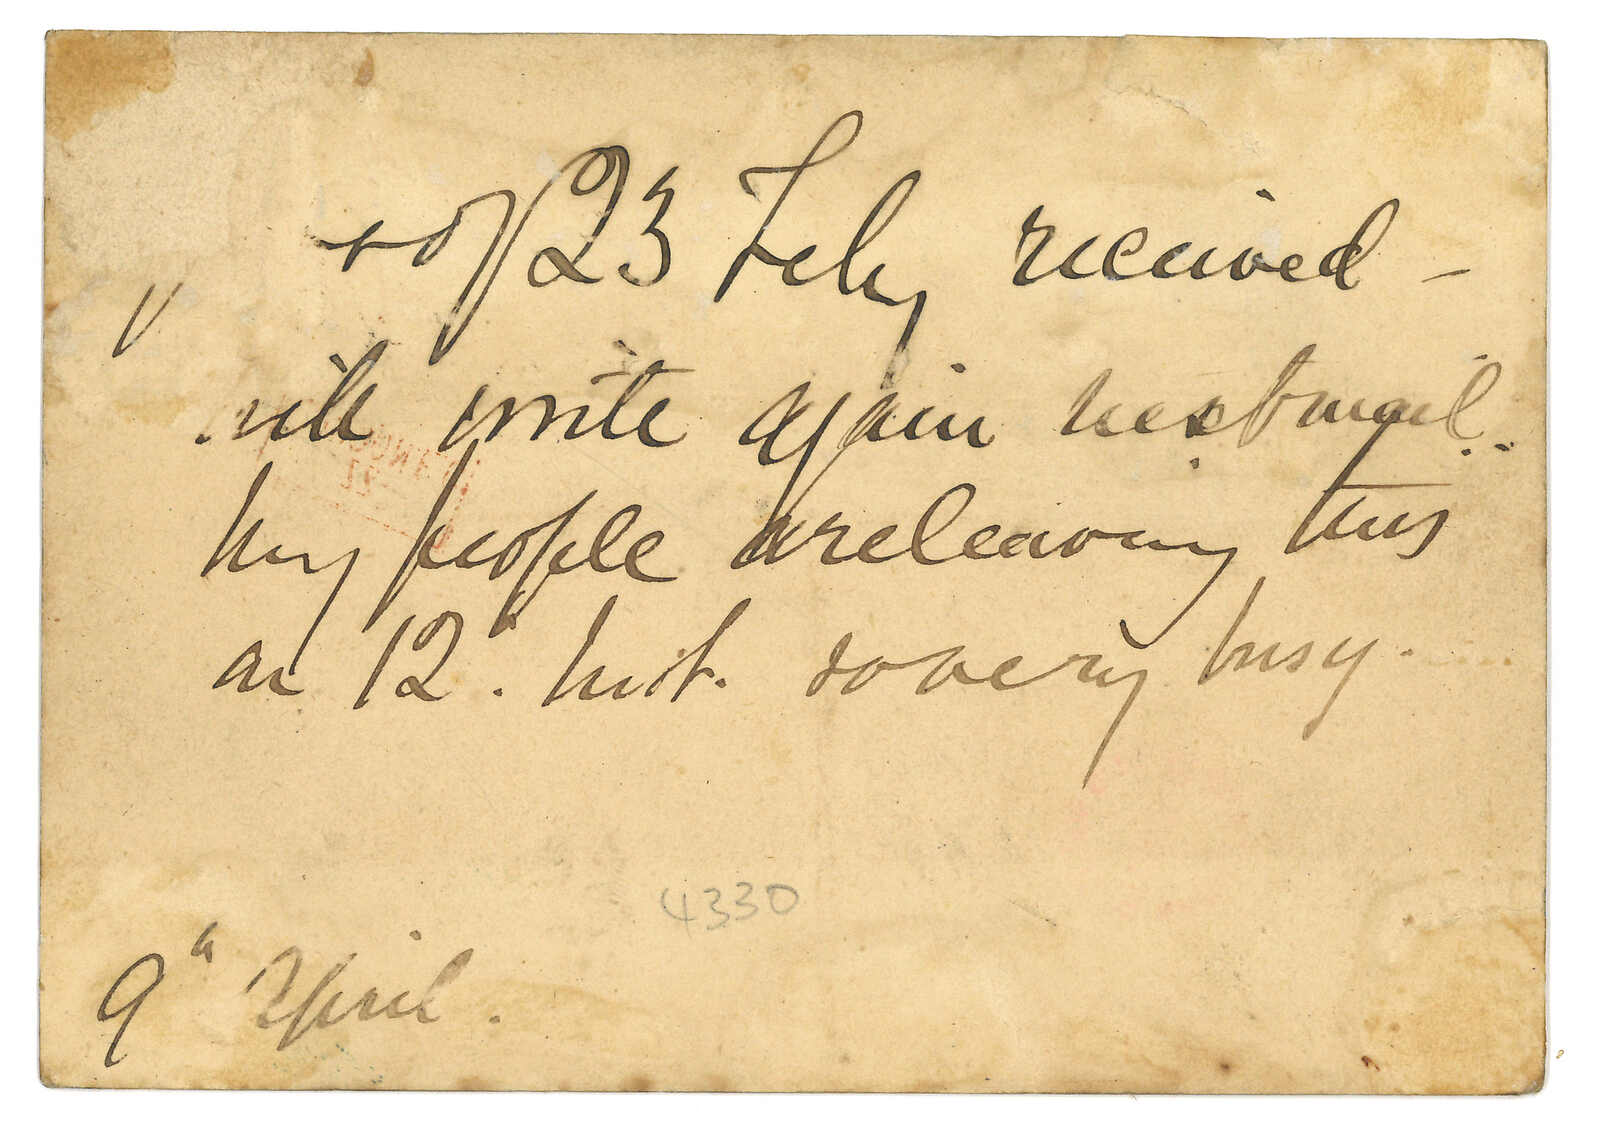 + of 23 Feby received –
will write again next mail.
My people are leaving this
on 12th. Inst. so very busy.
4330
9th April.